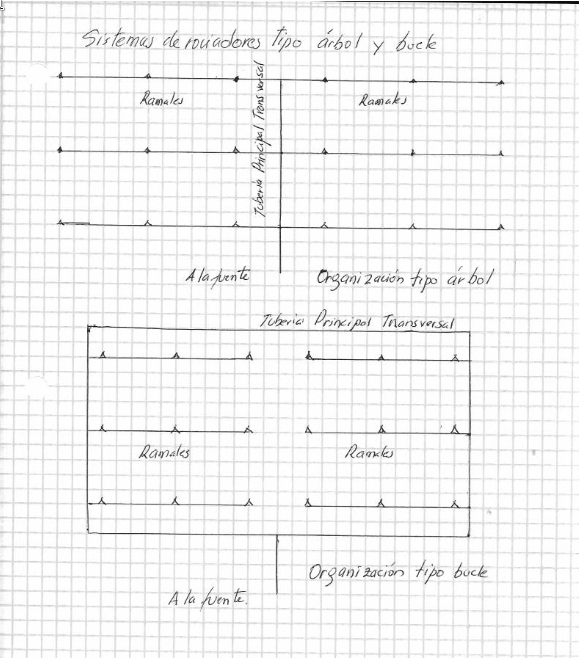 Sistemas de rociadores Tipo árbol y bucle
Ramales
Tubería Principal Transversal
Ramales
A la fuente
Organización tipo árbol
Tubería Principal Transversal
Ramales
Ramales
Organización tipo bucle
A la fuente.